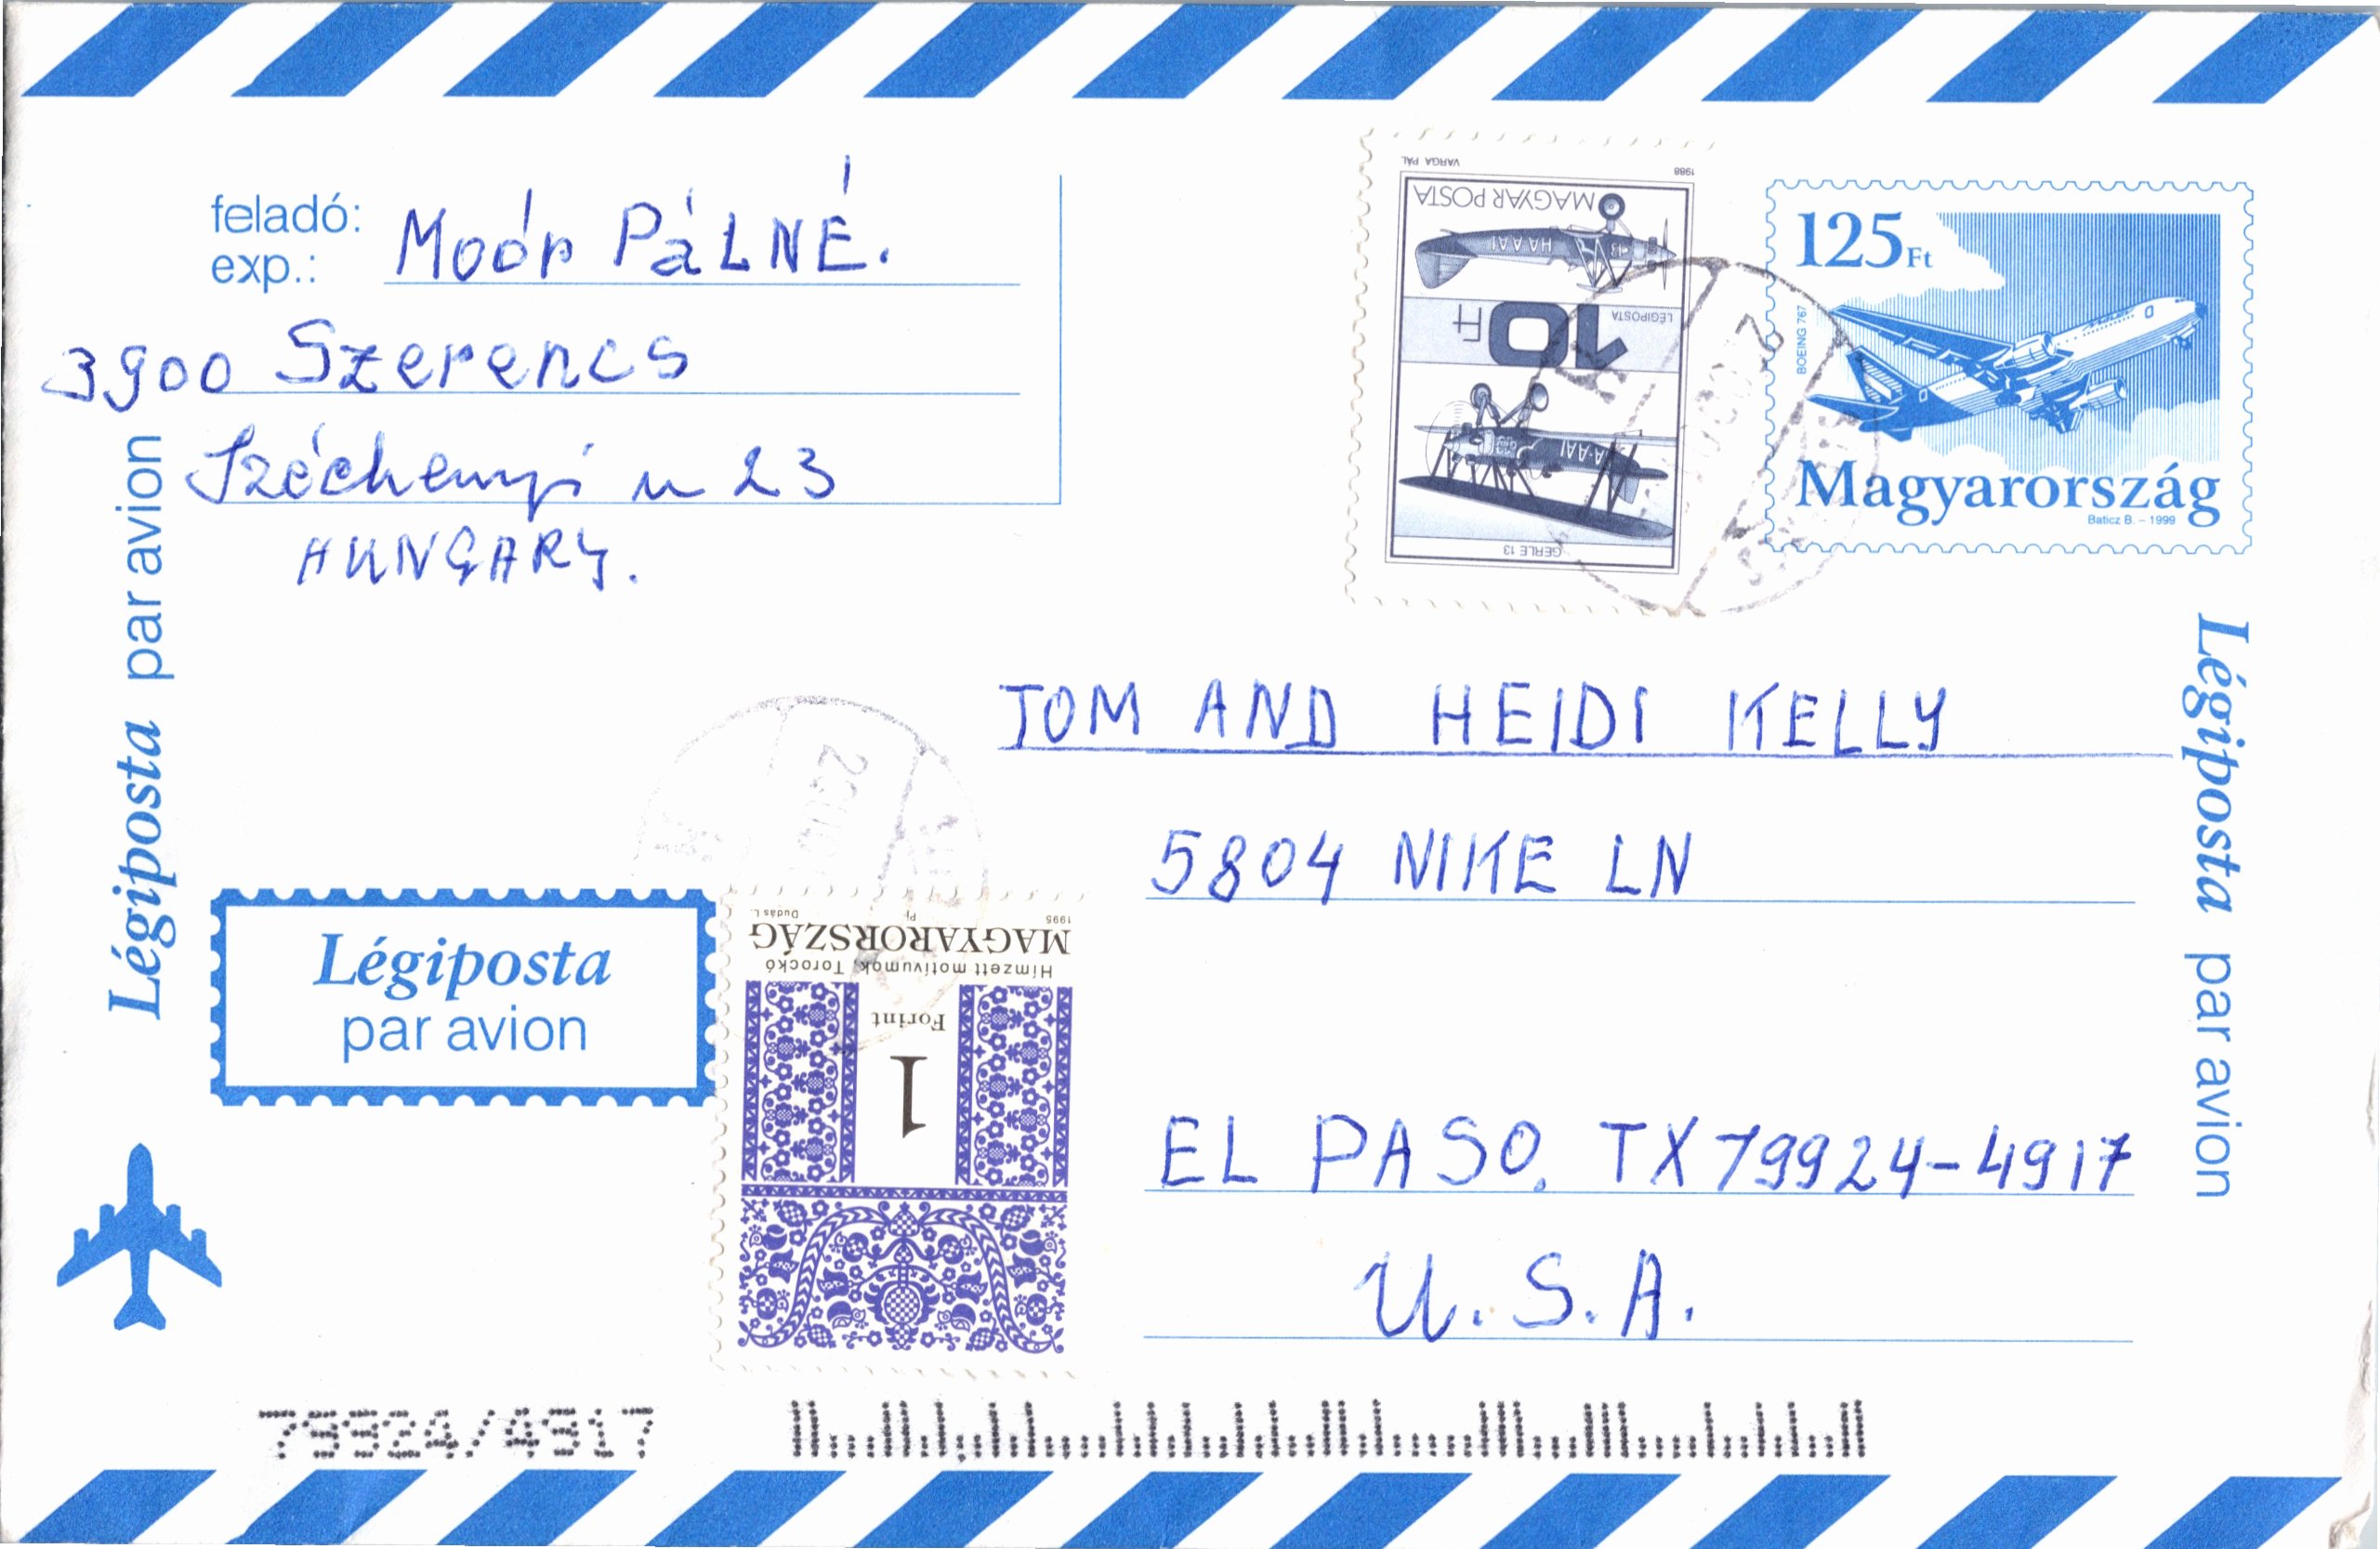 feladó:
exp.:
Moór PáLNÉ.
3900 Szerencs
Széchenyi u 23
HUNGARY.
VARGA PÁL
1988
MAGYAR POSTA
HA-AAI
LÉGIPOSTA
10 Ft
HA-AAI
GERLE 13
125 Ft
BOEING 767
Magyarország
Baticz B. – 1999
Légiposta par avion
TOM AND HEIDI KELLY
5804 NIKE LN
EL PASO, TX 79924-4917
U.S.A.
Légiposta par avion
Légiposta
par avion
1995
Dudás L.
MAGYARORSZÁG
Hímzett motívumok, Torockó
Forint
1
79924/4917